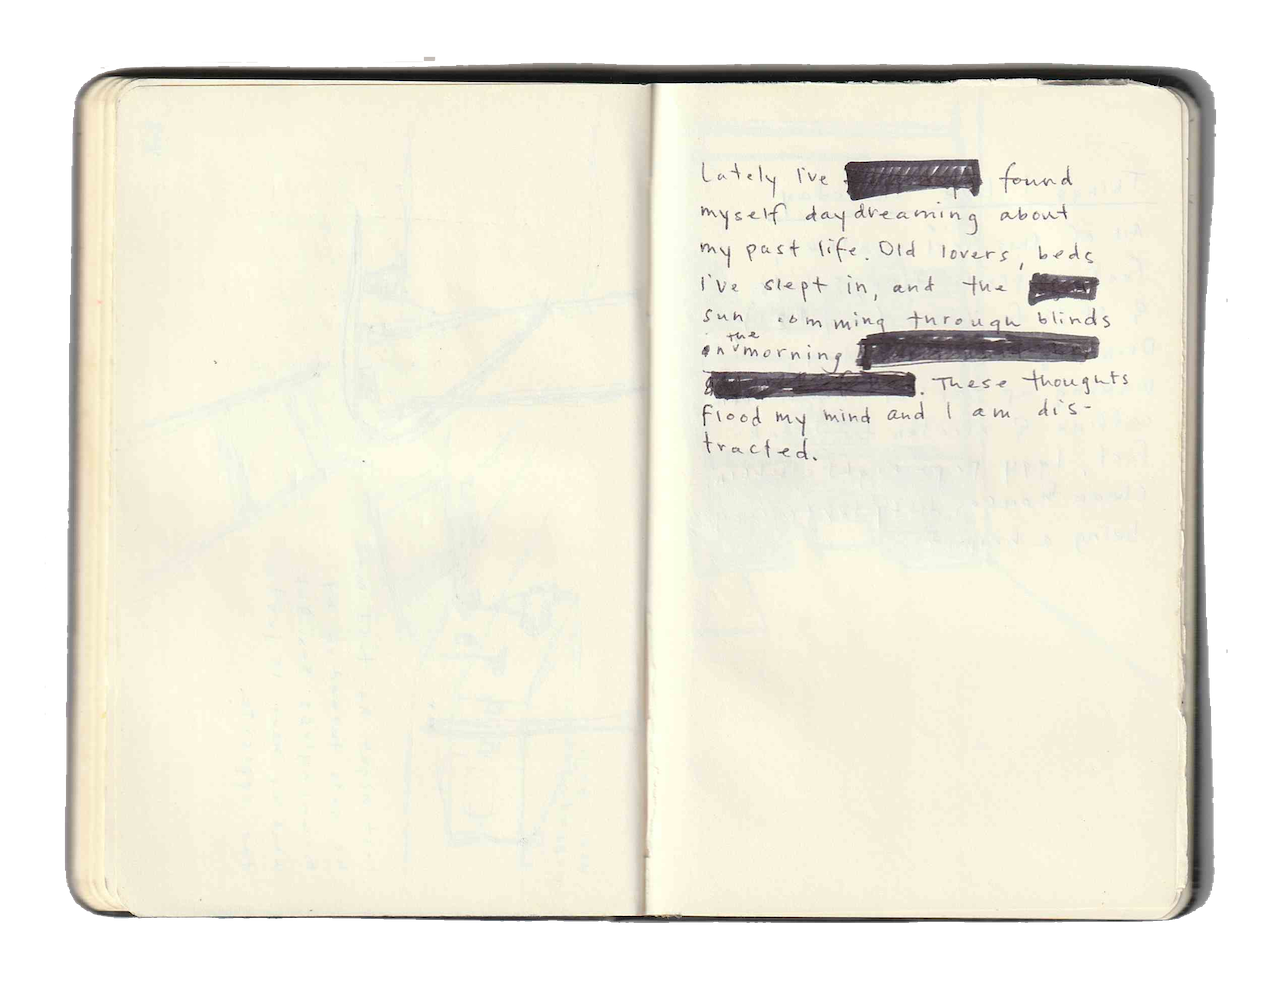 Lately I've found
myself daydreaming about
my past life. Old lovers, beds
I've slept in, and the
sun comming through blinds
in the morning
. These thoughts
flood my mind and I am dis-
tracted.